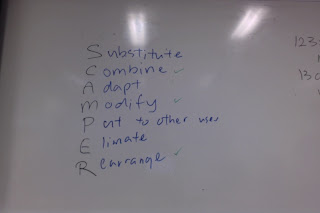 Substitute
Combine ✓
Adapt
Modify ✓
Put to other uses
Elimate
Rearrange ✓
123
13